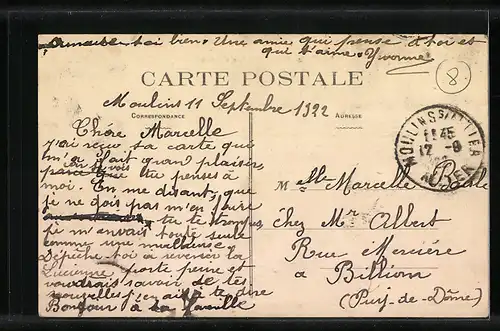 Amuse toi bien. Une amie qui pense à toi et
qui t'aime. Yvonne
8
CARTE POSTALE
Moulins 11 Septembre 1922
CORRESPONDANCE
ADRESSE
Chère Marcelle
j'ai reçu ta carte qui
m'a fait grand plaisir,
tu penses à
moi. En me disant, que
je ne dois pas m'en faire
tu te trompes,
je m'ennuis toute seule
comme une malheureuse
Dépêche toi à revenir la
Lucienne
voudrais savoir de tes
nouvelles j'en ai à te dire
Bonjour à ta famille
MOULINS S/ALLIER
45
12 - 9
ALLIER
Melle Marcelle
chez Mr Albert
Rue Mercière
à Billom
(Puy-de-Dôme)